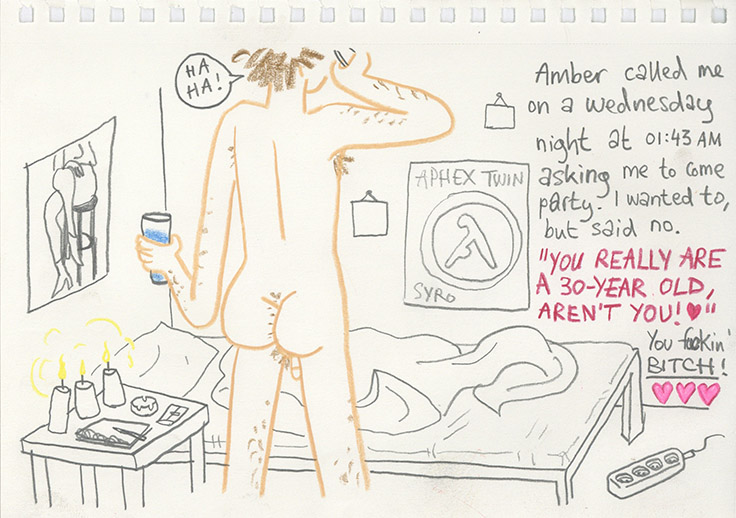 HA
HA!
Amber called me
on a wednesday
night at 01:43 AM
asking me to come
party. I wanted to,
but said no.
"YOU REALLY ARE
A 30-YEAR OLD,
AREN'T YOU!♥"
You fuckin'
BITCH!
APHEX TWIN
SYRO